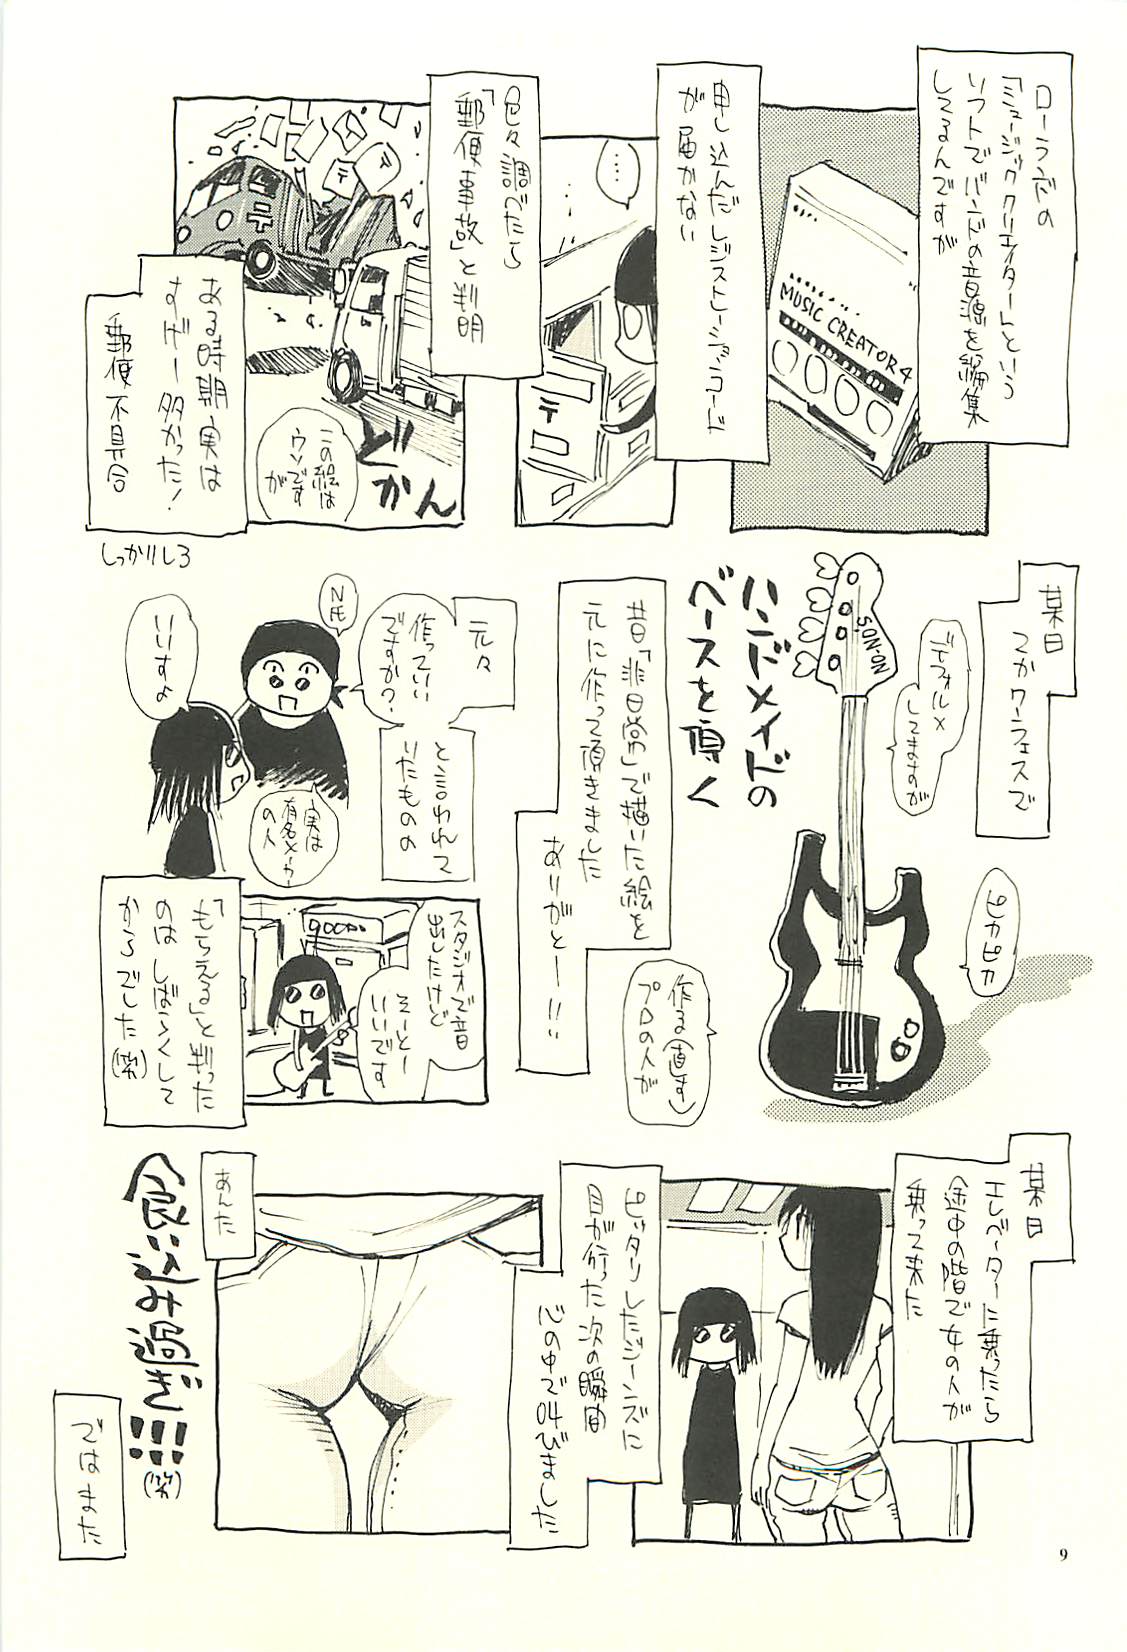 ローランドの
「ミュージッククリエイター」という
ソフトでバンドの音源を編集
してるんですが
MUSIC CREATOR 4
申し込んだレジストレーションコード
が届かない
……
〒
色々調べたら
「郵便事故」と判明
〒
〒
どかん
この絵は
ウソです
が
ある時期実は
すげー多かった!
郵便不具合
しっかりしろ
某日
デフォルメ
してますが
SON-ON
ピカピカ
ハンドメイドの
ベースを頂く
昔「非日常」で描いた絵を
元に作って頂きました
ありがとー!!!
作る(直す)
プロの人が
元々
N氏
作っていい
ですか?
いいすよ
と言われて
いたものの
実は
有名メーカー
の人
スタジオで音
出したけど
そーとー
いいです
「もらえる」と判った
のはしばらくして
からでした(笑)
某日
エレベーターに乗ったら
途中の階で女の人が
乗って来た
ピッタリしたジーンズに
目が行った次の瞬間
心の中で叫びました
あんた
食い込み過ぎ!!!
(笑)
ではまた
9